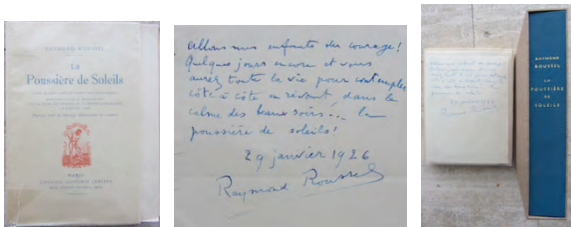 RAYMOND ROUSSEL
La
Poussière de Soleils
PARIS
LIBRAIRIE ALPHONSE LEMERRE
Allons mes enfants du courage!
Quelques jours encore et vous
aurez toute la vie pour contempler
côte à côte en rêvant dans le
calme des beaux soirs... la
poussière de soleils!
29 janvier 1926
Raymond Roussel
RAYMOND
ROUSSEL
LA
POUSSIÈRE
DE
SOLEILS